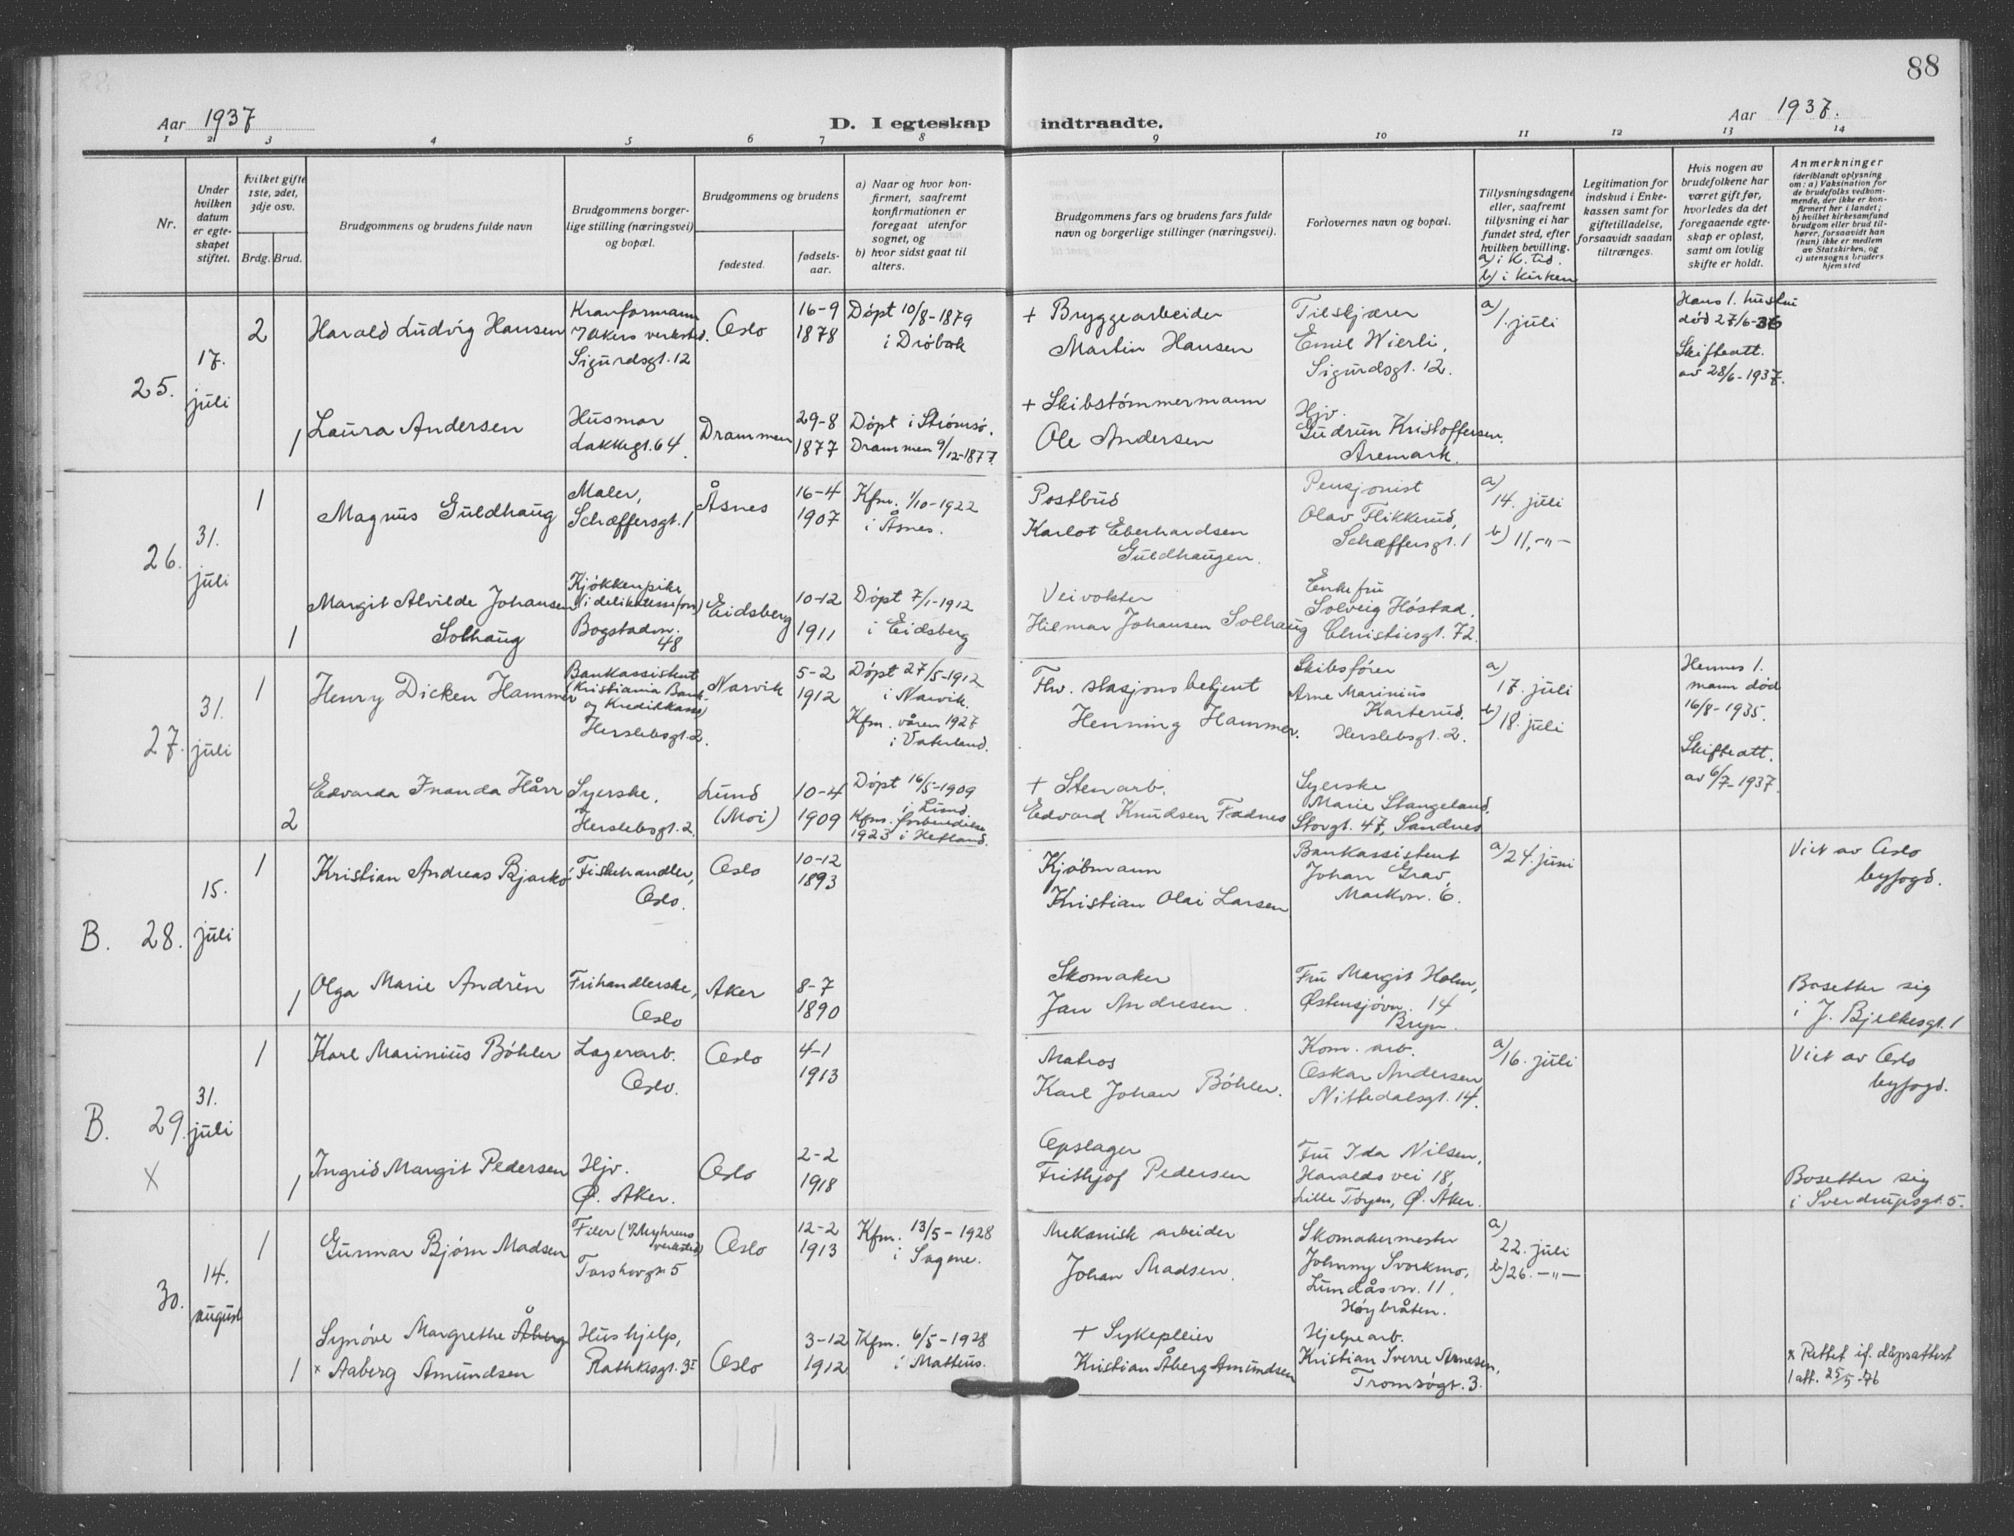 88
Aar 1937
D. I egteskap indtraadte.
Aar 1937.
1 2 3 4 5 6 7 8 9 10 11 12 13 14
Nr.
Under hvilken datum er egteskapet stiftet.
hvilket gifte 1ste, 2det, 3dje osv.
Brdg. Brud.
Brudgommens og brudens fulde navn
Brudgommens borgerlige stilling (næringsvei) og bopæl.
Brudgommens og brudens
fødested.
fødselsaar.
a) Naar og hvor konfirmert, saafremt konfirmationen er foregaat utenfor sognet, og
b) hvor sidst gaat til alters.
Brudgommens fars og brudens fars fulde navn og borgerlige stillinger (næringsvei).
Forlovernes navn og bopæl.
Tillysningsdagene eller, saafremt tillysning ei har fundet sted, efter hvilken bevilling.
a) i K. tid.
b) i kirken
Legitimation for indskud i Enkekassen samt for giftetilladelse, forsaavidt saadan tiltrænges.
Hvis nogen av brudefolkene har været gift før, hvorledes da det foregaaende egteskap er opløst, samt om lovlig skifte er holdt.
Anmerkninger
(deriblandt oplysning om: a) Vaksination for de brudefolks vedkommende, der ikke er konfirmert her i landet; b) hvilket kirkesamfund brudgom eller brud tilhører, forsaavidt han (hun) ikke er medlem av Statskirken, og c) utensogns bruders hjemsted
25.
17. juli
2
Harald Ludvig Hansen
Kranformann
v/ Akers verksted.
Sigurdsgt. 12
Oslo
16-9
1878
Døpt 10/8-1879
i Drøbak
+ Bryggearbeider
Martin Hansen
Tilskjærer
Emil Wierli,
Sigurdsgt. 12.
a)
1. juli
Hans 1. hustru
død 27/6-36
Skifteatt.
av 28/6-1937.
1
Laura Andersen
Husmor
Lakkegt. 64.
Drammen
29-8
1877
Døpt i Strømsø,
Drammen 9/12-1877.
+ Skibstømmermann
Ole Andersen
Hjv.
Gudrun Kristoffersen,
Aremark.
26.
31. juli
1
Magnus Guldhaug
Maler,
Schæffersgt. 1
Åsnes
16-4
1907
Kfm. 1/10-1922
i Åsnes.
Postbud
Karlot Eberhardsen
Guldhaugen.
Pensjonist
Olav Flikkerud,
Schæffersgt. 1
a)
14. juli
b) 11. -"-
1
Margit Alvilde Johansen
Solhaug
Kjøkkenpike
(i delikatesseforr.)
Bogstadvn.
48
Eidsberg
10-12
1911
Døpt 7/1-1912
i Eidsberg
Veivokter
Hilmar Johansen Solhaug
Enkefru
Solveig Høstad,
Christiesgt. 72.
27.
31. juli
1
Henry Dicken Hammer
Bankassistent
(Kristiania Bank-
og Kreditkasse)
Herslebsgt. 2.
Narvik
5-2
1912
Døpt 27/5-1912
i Narvik.
Kfm. våren 1927
i Vaterland.
Fhv. stasjonsbetjent
Henning Hammer.
Skibsfører
Arne Marinius
Karterud.
Herslebsgt. 2.
a)
17. juli
b)
18. juli
Hennes 1.
mann død
16/8-1935.
Skifteatt.
av 6/7-1937.
2
Edvarda Inanda Hårr
Syerske,
Herslebsgt. 2.
Lund
(Moi)
10-4
1909
Døpt 16/5-1909
i Lund.
Kfm.
1923 i Hetland.
+ Stenarb.
Edvard Knudsen Fadnes
Syerske
Marie Stangeland,
Storgt. 47, Sandnes
B. 28.
15. juli
1
Kristian Andreas Bjarkø
Fiskehandler,
Oslo.
Oslo
10-12
1893
Kjøbmann
Kristian Olai Larsen
Bankassistent
Johan Grav,
Markvn. 6.
a) 24. juni
Viet av Oslo
byfogd.
1
Olga Marie Andrèn
Frihandlerske,
Oslo
Aker
8-7
1890
Skomaker
Jan Andresen.
Fru Margit Holm,
Østensjøvn. 14
Bryn.
Bosetter sig
i J. Bjelkesgt. 1
B. 29.
X
31. juli
1
Karl Marinius Bøhler
Lagerarb.
Oslo.
Oslo
4-1
1913
Matros
Karl Johan Bøhler.
Kom. arb.
Oskar Andersen
Nittedalsgt. 14.
a)
16. juli
Viet av Oslo
byfogd.
1
Ingrid Margit Pedersen
Hjv.
Ø. Aker.
Oslo
2-2
1918
Opslager
Frithjof Pedersen
Fru Ida Nilsen,
Haralds vei 18,
Lille Tøyen, Ø. Aker.
Bosetter sig
i Sverdrupsgt. 5.
30.
14. august
1
Gunnar Bjørn Madsen
Filer (v/Myhrens
verksted)
Torshovgt. 5
Oslo
12-2
1913
Kfm. 13/5-1928
i Sagene.
Mekanisk arbeider
Johan Madsen.
Skomakermester
Johnny Svorkmo,
Lundåsvn. 11.
Høybråten.
a)
22. juli
b) 26. -"-
1
Synøve Margrethe Åberg
x Aaberg Amundsen
Hushjelp,
Rathkesgt. 3 I
Oslo
3-12
1912
Kfm. 6/5-1928
i Matteus.
+ Sykepleier
Kristian Åberg Amundsen
Hjelpearb.
Kristian Sverre Arnesen,
Tromsøgt. 3.
x Rettet if. dåpsattest
1 att. 25/5-76